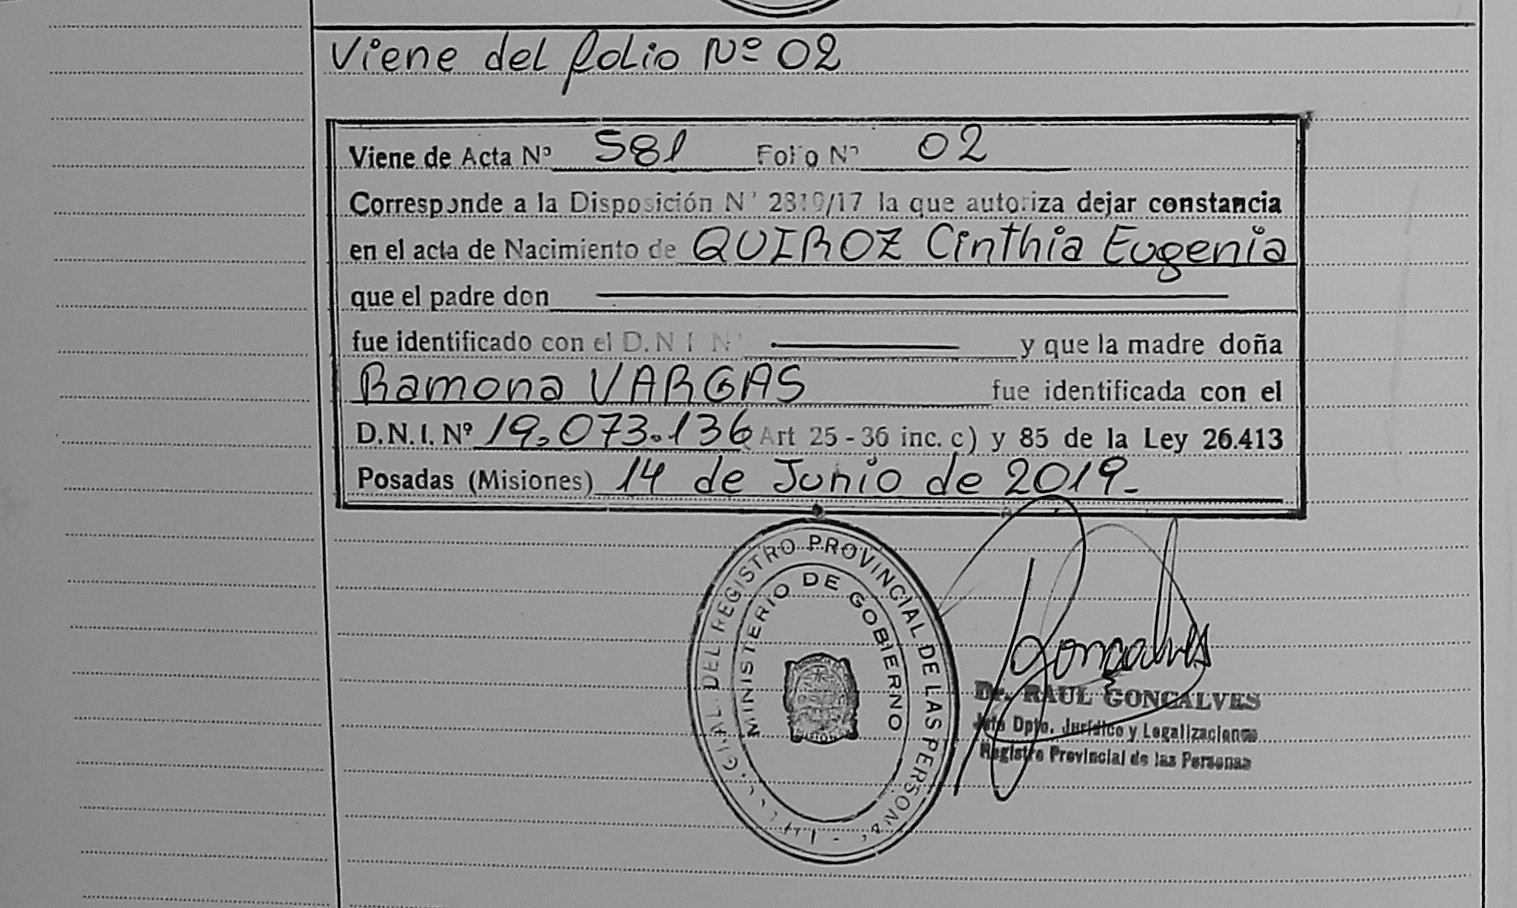 Viene del folio Nº 02
Viene de Acta Nº 581 Folio Nº 02
Corresponde a la Disposición Nº 2319/17 la que autoriza dejar constancia
en el acta de Nacimiento de QUIROZ Cinthia Eugenia
que el padre don
fue identificado con el D.N.I. Nº y que la madre doña
Ramona VARGAS fue identificada con el
D.N.I. Nº 19.073.136 Art 25 - 36 inc. c) y 85 de la Ley 26.413
Posadas (Misiones) 14 de Junio de 2019.
DEL REGISTRO PROVINCIAL DE LAS PERSONAS
MINISTERIO DE GOBIERNO
Gonçalves
Dr. RAUL GONÇALVES
Jefe Dpto. Jurídico y Legalizaciones
Registro Provincial de las Personas